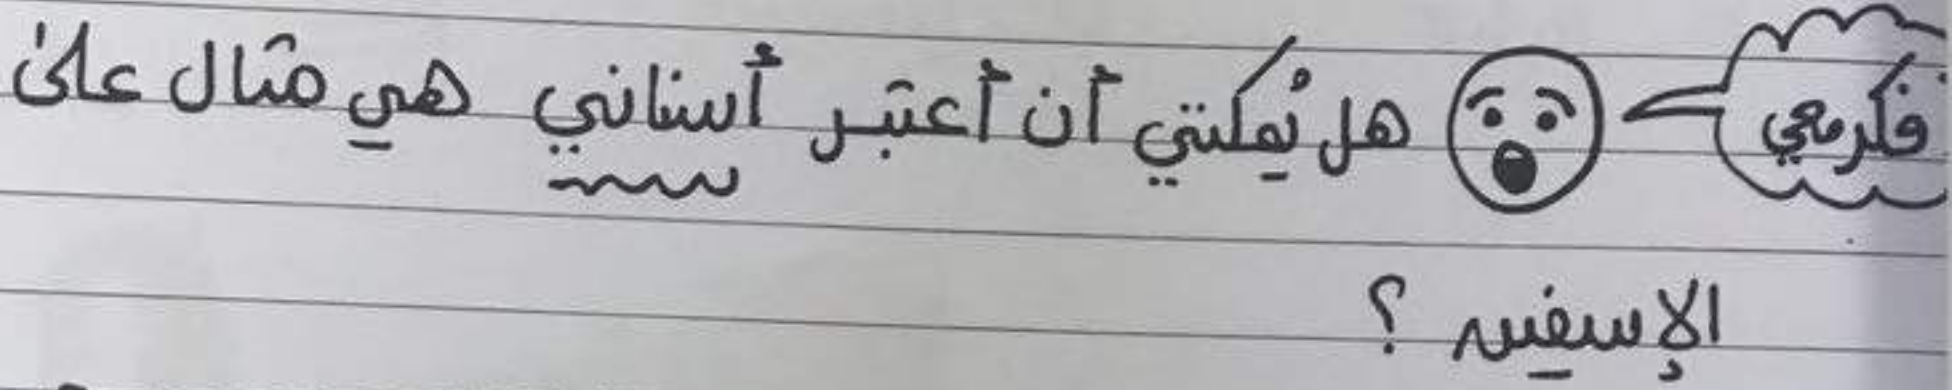 فكر معي
هل يُمكنني أن أعتبر أسناني هي مثال على
الإسفين ؟